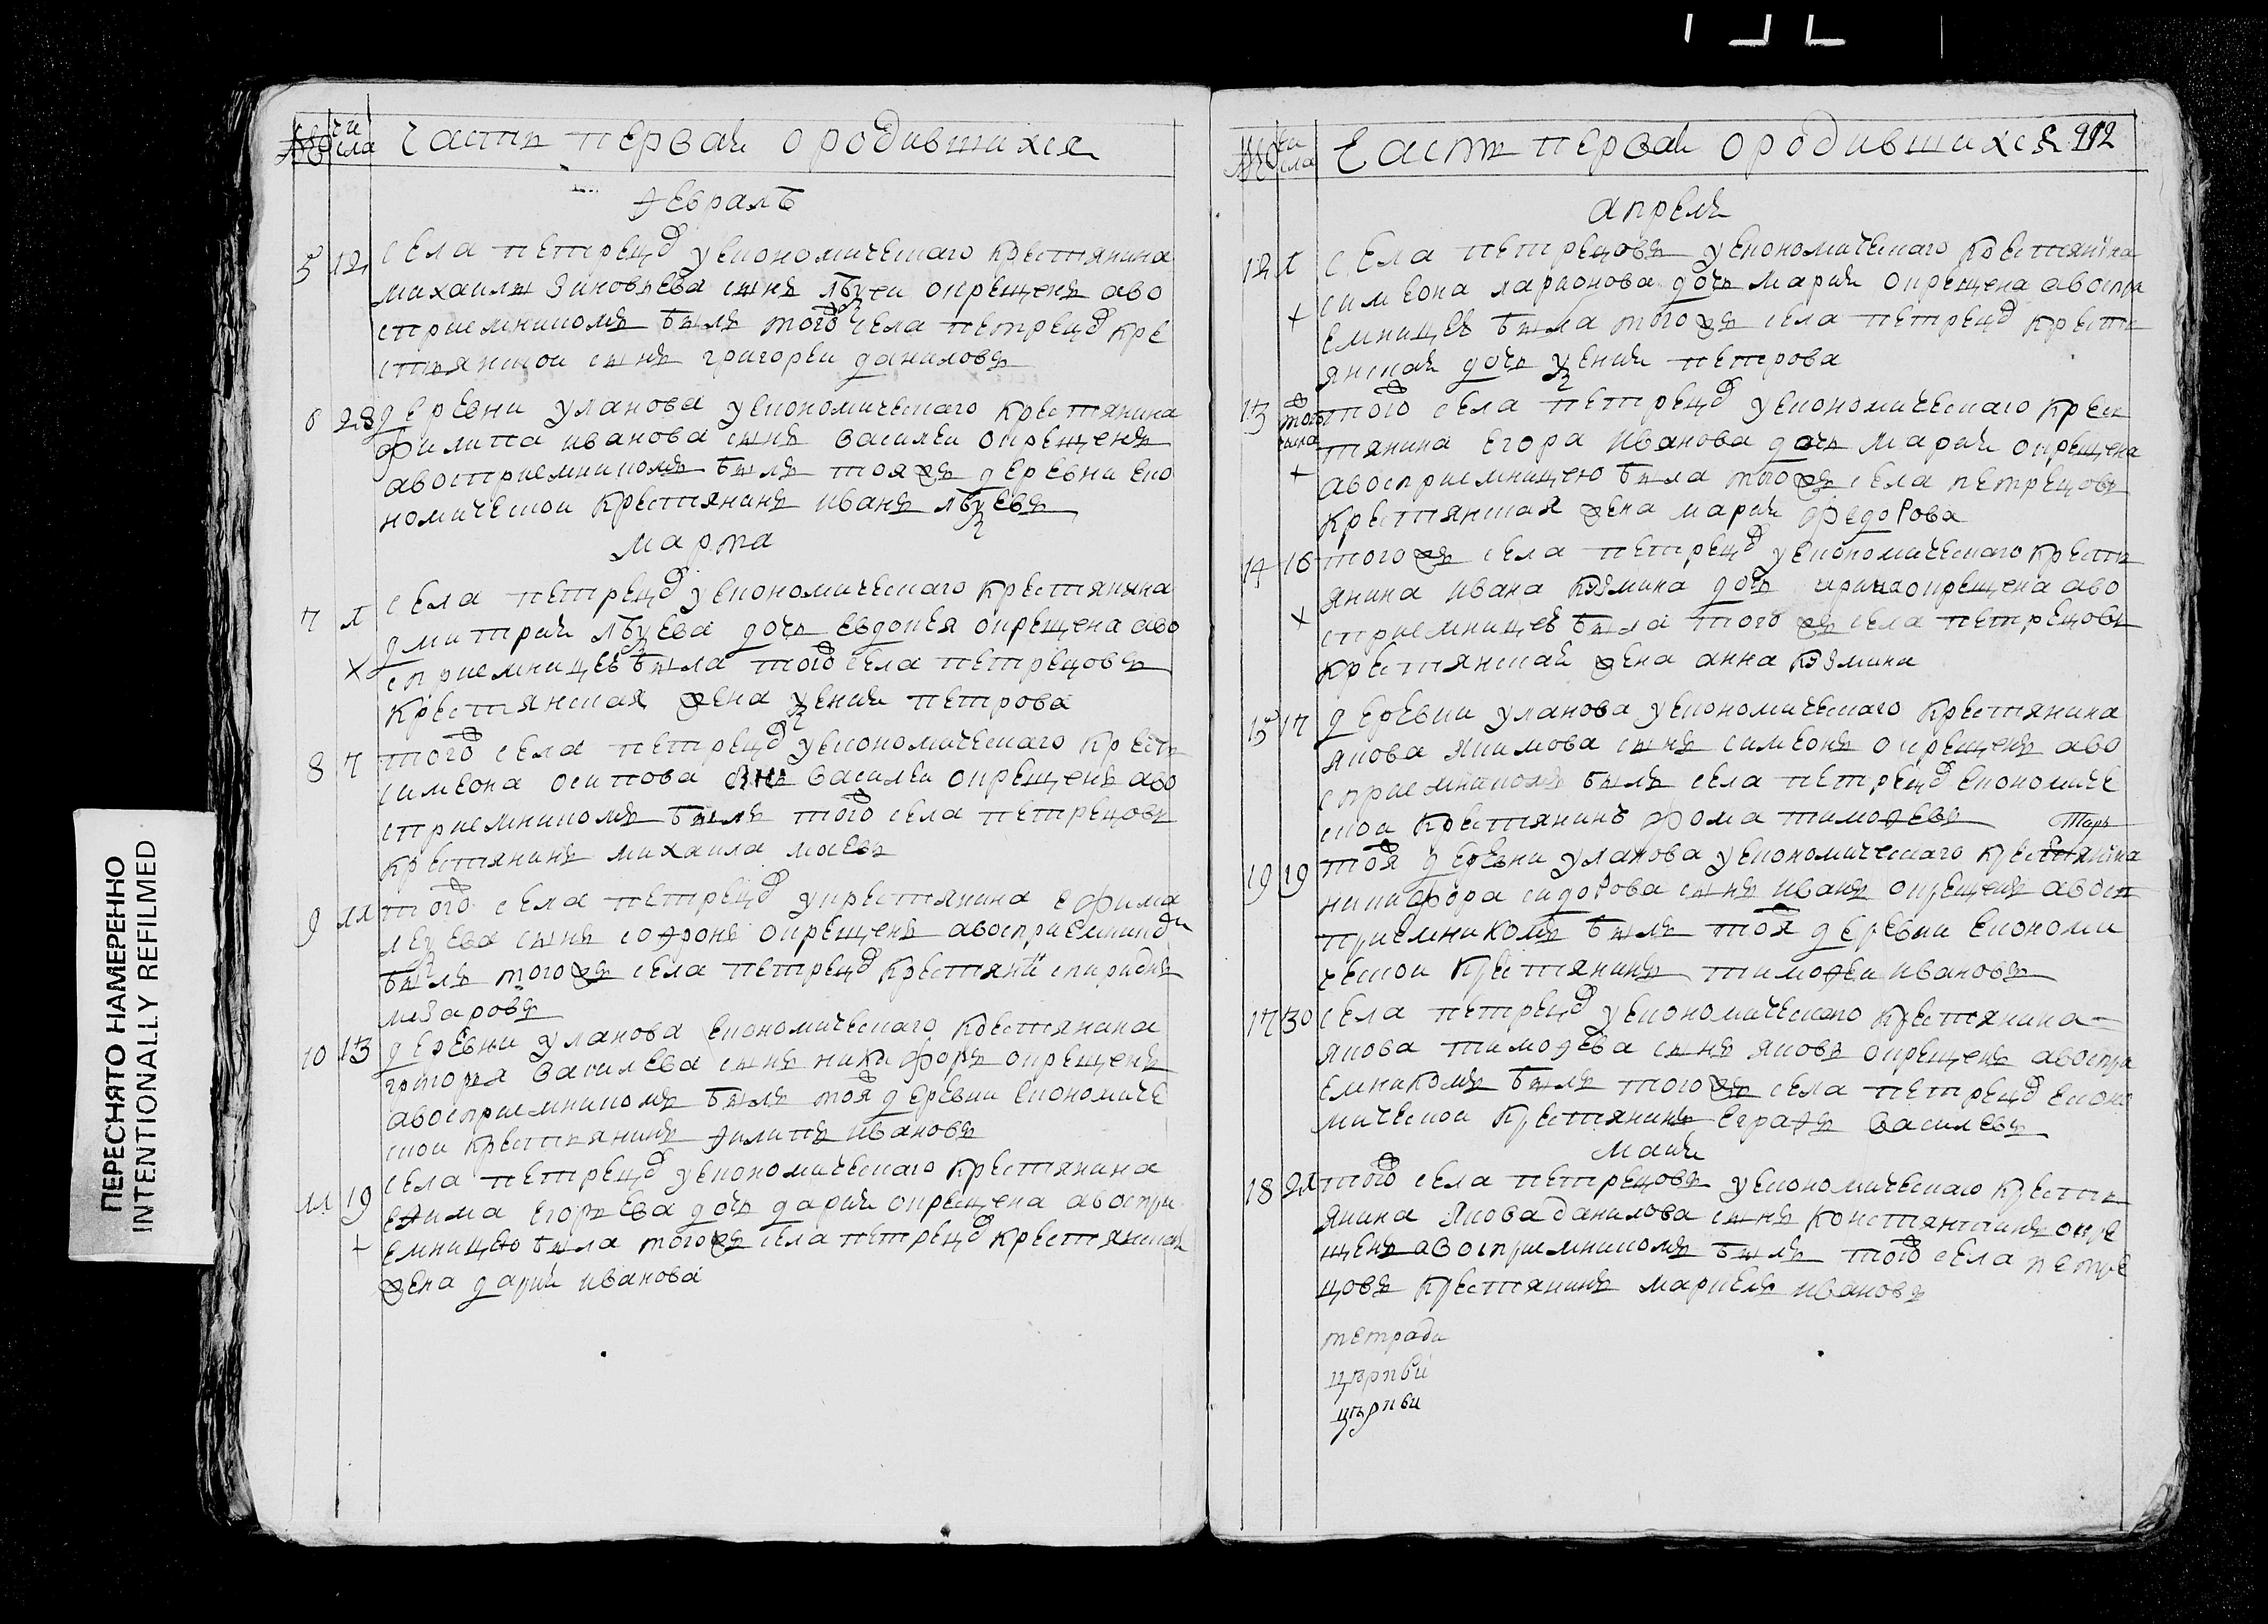 № числа Часть первая о родившихся
февраль
5 12 села петрецов у економическаго крестянина
михаила зиновьева сынъ сынъ крещенъ а во
сприемникомъ былъ того села петрецов кре
стьянской сынъ григореи даниловъ
6 28 деревни уланова у економическаго крестянина
филипа иванова сынъ василеи окрещенъ
а восприемникомъ былъ тояже деревни еко
номическои крестянинъ иванъ
марта
7 1 села петрецов у економическаго крестянина
дмитрия дочь евдокея окрещена а во
сприемницею была тогож села петрецовъ
крестянская жена ксения петрова
8 7 тогож села петрецов у економическаго кресть
симеона осипова сынъ василеи окрещенъ а во
сприемникомъ былъ тогож села петрецовъ
крестянинъ михаила
9 11 тогож села петрецов у крестянина ефима
сынъ софронъ окрещенъ а восприемником
былъ тогожъ села петрецов крестянин спиридон
назаровъ
10 13 деревни уланова економическаго крестянина
григорья василева сынъ никифоръ окрещенъ
а восприемникомъ былъ тояж деревни економиче
скои крестьянинъ филипъ ивановъ
11 19 села петрецов у економическаго крестянина
ефима егорьева дочь дария окрещена а воспри
емницею была тогожъ села петрецов крестянская
жена дария иванова
№ числа Часть первая о родившихся 912
апреля
12 1 села петрецовъ у економическаго крестянина
симеона ларионова дочь мария окрещена а воспри
емницею была тогожъ села петрецов кресть
янская дочь ксения петрова
13 того числа тогож села петрецов у економическаго крес
тянина егора иванова дочь мария окрещена
а восприемницею была тогожъ села петрецовъ
крестянская жена мария федорова
14 16 тогожъ села петрецов у економическаго кресть
янина ивана козмина дочь ирина окрещена а во
сприемницею была тогожъ села петрецовъ
крестянская жена анна козмина
15 17 деревни уланова у економическаго крестянина
якова якимова сынъ симеонъ окрещенъ а во
сприемникомъ былъ села петрецов економиче
скои крестянинъ фома тимофеевъ
19 19 тояж деревни уланова у економическаго крестянина
никифора сидорова сынъ иванъ окрещенъ а восп
приемникомъ былъ тояж деревни економи
ческои крестянинъ тимофеи ивановъ
17 30 села петрецов у економическаго крестянина
якова тимофева сынъ яковъ окрещенъ а воспри
емникомъ былъ тогожъ села петрецов еконо
мическои крестянинъ евграфъ василевъ
маия
18 21 тогож села петрецовъ у економическаго кресть
янина якова данилова сынъ константинъ окре
щенъ а восприемникомъ былъ тогож села петре
цовъ крестянинъ маркелъ ивановъ
тетради
църкви
църкви
ПЕРЕСНЯТО НАМЕРЕННО
INTENTIONALLY REFILMED